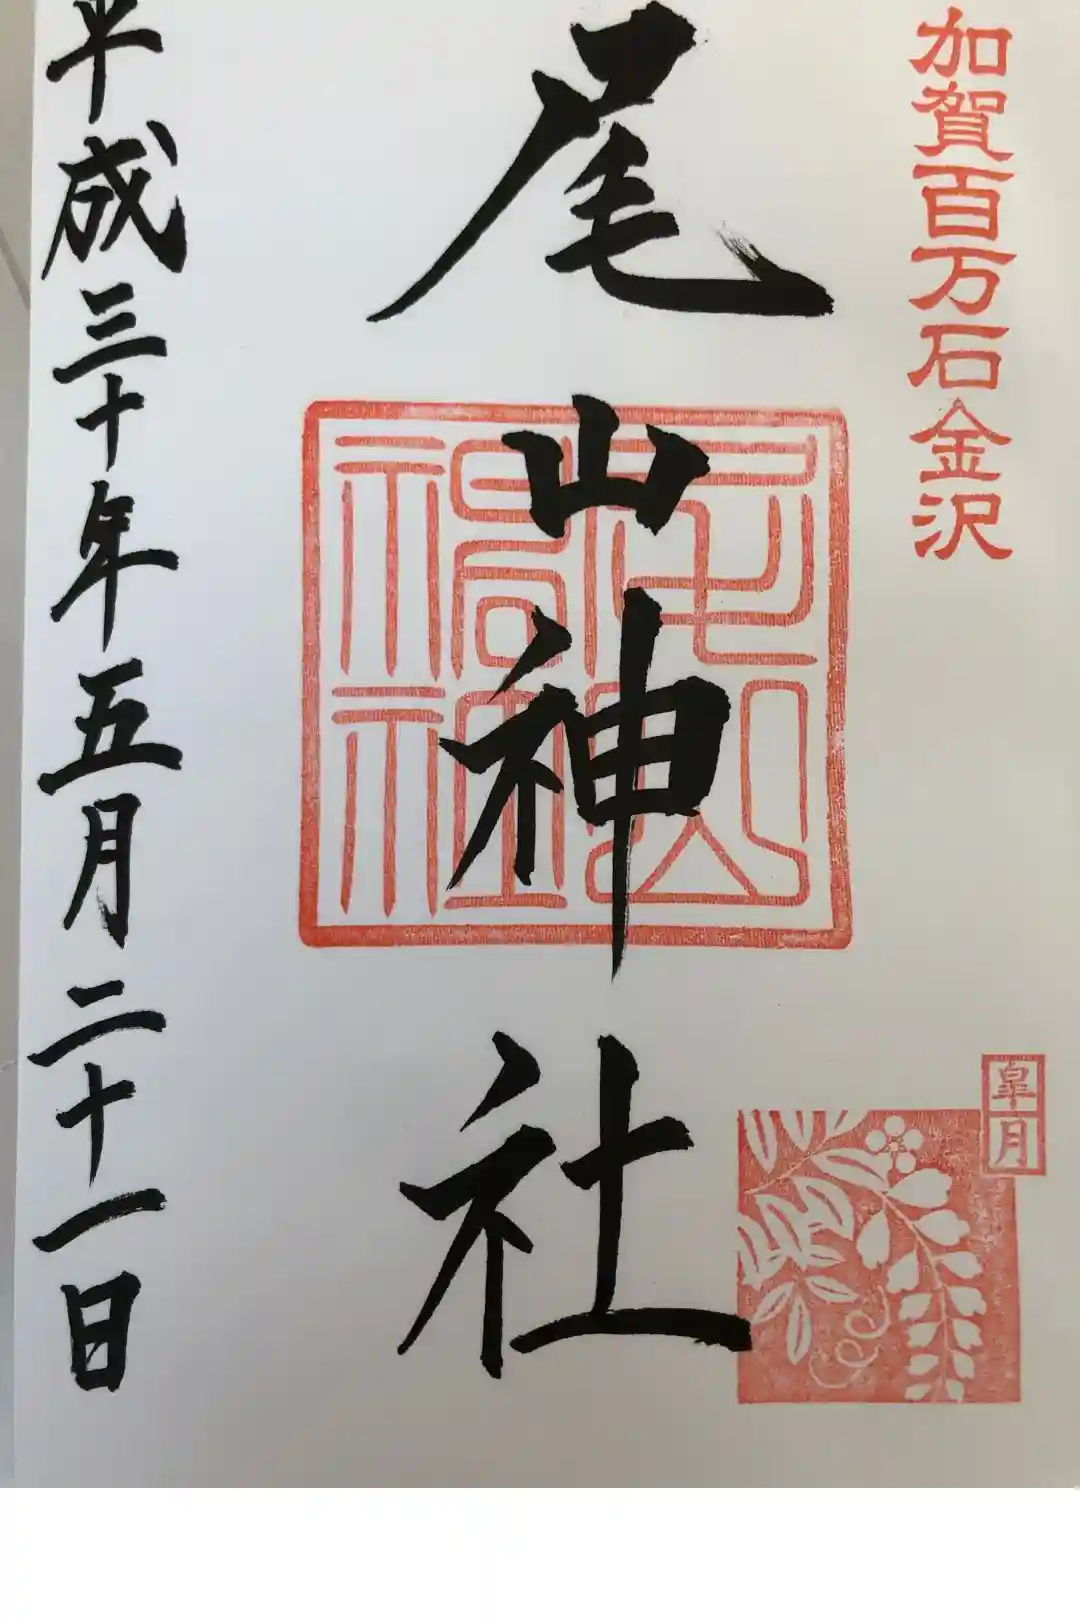 加賀百万石金沢
尾山神社
尾山神社
皐月
平成三十年五月二十一日